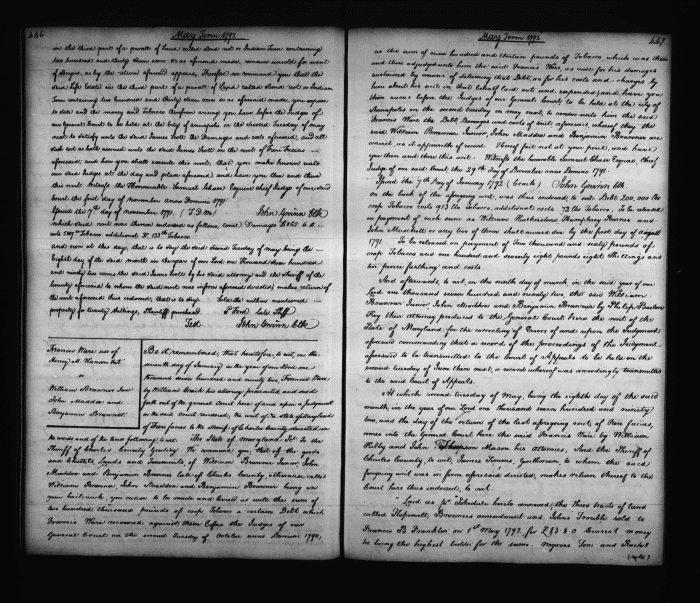 446
May Term 1792
in the third part of a parcell of Land called Send not or Indian Town containing
two hundred and thirty seven acres so as aforesaid made, remains unsold for want
of Buyers, as by the return aforesaid appears, Therefore we command you that the
said Life Estate in the third part of a parcell of Land called not or Indian
Town containing two hundred and thirty seven acres so as aforesaid made, you expose
to sale and the money and Tobacco therefrom arising you have before the Judges of
our General Court to be held at the City of Annapolis on the second Tuesday of May
next to satisfy unto the said James Scott the Damages and costs aforesaid, and all
such costs as hath accrued unto the said James Scott on the writ of Fieri Facias
aforesaid; and how you shall execute this writ, that you make known unto
our said Judges at the day and place aforesaid and have you then and there
this writ. Witness the Honourable Samuel Chase Esquire chief Judge of our said
Court the first day of November anno Domini 1791
Issued the 7th day of November 1791. John Gwinn Clk
which said writ was thereon endorsed as follows, to wit,
Tobacco additional
and now at this day, that is to say the said second Tuesday of May being the
Eight day of the said month in the year of our Lord one thousand seven hundred
and ninety two comes the said James Scott by his said attorney and the Sheriff of the
County aforesaid to whom the said writ was in form aforesaid directed makes return of
the writ aforesaid thus endorsed, that is to say Sold the within mentioned
property for twenty shillings, Plaintiff purchased Ford late Shff
Test. John Gwinn Clk
Francis Ware use of
Henry M. Hanson
v
William Brawner Junr
John Maddox and
Benjamin Brawner
Be it remembered, that heretofore, to wit, on the
seventh day of January in the year of our Lord one
thousand seven hundred and ninety two, Francis Ware
by William Craik his attorney prosecuted and sued
forth out of the general Court here of and upon a Judgment
in the said Court rendered, the writ of the State of Maryland
of Fieri facias to the Sheriff of Charles County directed in
the words and of the tenor following to wit. The State of Maryland To the
Sheriff of Charles County Greeting We command you that of the goods
and chattels, Lands and Tenements of William Brawner Junior, John
Maddox and Benjamin Brawner late of Charles County, otherwise called
William Brawner, John Maddox and Benjamin Brawner being in
your bailiwick, you cause to be made and levied as well the sum of
two hundred thousand pounds of crop Tobacco a certain Debt which
Francis Ware recovered against them before the Judges of our
General Court on the second Tuesday of October anno Domini 1790,
May Term 1792
447
as the sum of nine hundred and thirteen pounds of Tobacco which was then
and there adjudged unto him the said Francis Ware, as well for his damages
sustained by means of detaining that Debt, as for his costs and charges by
him about his suit in that behalf laid out and expended; and have you
those sums before the Judges of our General Court to be held at the city of
Annapolis on the second Tuesday in May next, to render unto him the said
Francis Ware the Debt, Damages and costs of suit aforesaid; whereof they the
said William Brawner Junior, John Maddox and Benjamin Brawner are
convict, as it appeareth of record. Hereof fail not at your peril, and have
you then and there this writ. Witness the honorable Samuel Chase Esquire, Chief
Judge of our said Court the 29th day of December anno Domini 1791.
Issued the 7th day of January 1792 (Craik) John Gwinn Clk
on the back of the foregoing writ, was thus endorsed to wit. Debt 200,000 lbs
crop Tobacco costs 913 lbs tobacco, additional costs 73 lbs Tobacco, To be released
on payment of such sum as William Humphrey Barnes and
John or any two of them shall award due by the first day of August
1791 To be released on payment of Ten thousand and sixty pounds of
crop Tobacco and one hundred and seventy eight pounds eight shillings and
six pence farthing and costs
And afterwards, to wit, on the ninth day of march, in the said year of our
Lord one thousand seven hundred and ninety two, the said William
Brawner Junior, John Maddox and Benjamin Brawner by Philip Barton
Key their attorney produced to the General Court here the writ of the
State of Maryland for the correcting of Errors of and upon the Judgment
aforesaid commanding that a record of the proceedings of the Judgment
aforesaid to be transmitted to the Court of Appeals to be held on the
second Tuesday of June then next, a record whereof was accordingly transmitted
to the said Court of Appeals.
At which second tuesday of May, being the eighth day of the said
month, in the year of our Lord one thousand seven hundred and ninety
two, and the day of the return of the last aforegoing writ of Fieri facias,
comes into the General Court here the said Francis Ware by William
Kilty and John Thomson Mason his attornies, And the Sheriff of
Charles County to wit, James Simms, Gentleman, to whom the said
foregoing writ was in form aforesaid directed, makes return thereof to the
Court here thus endorsed, to wit,
Laid as pr. Schedule hereto annexed; the three tracts of land
called Hopewell, Brawners amendment and Johns Trouble sold to
Francis B Franklin on 1st May 1792. for £ 38 0 Current money
he being the highest bidder for the same. Negroes Tom and Rachel
(sold)